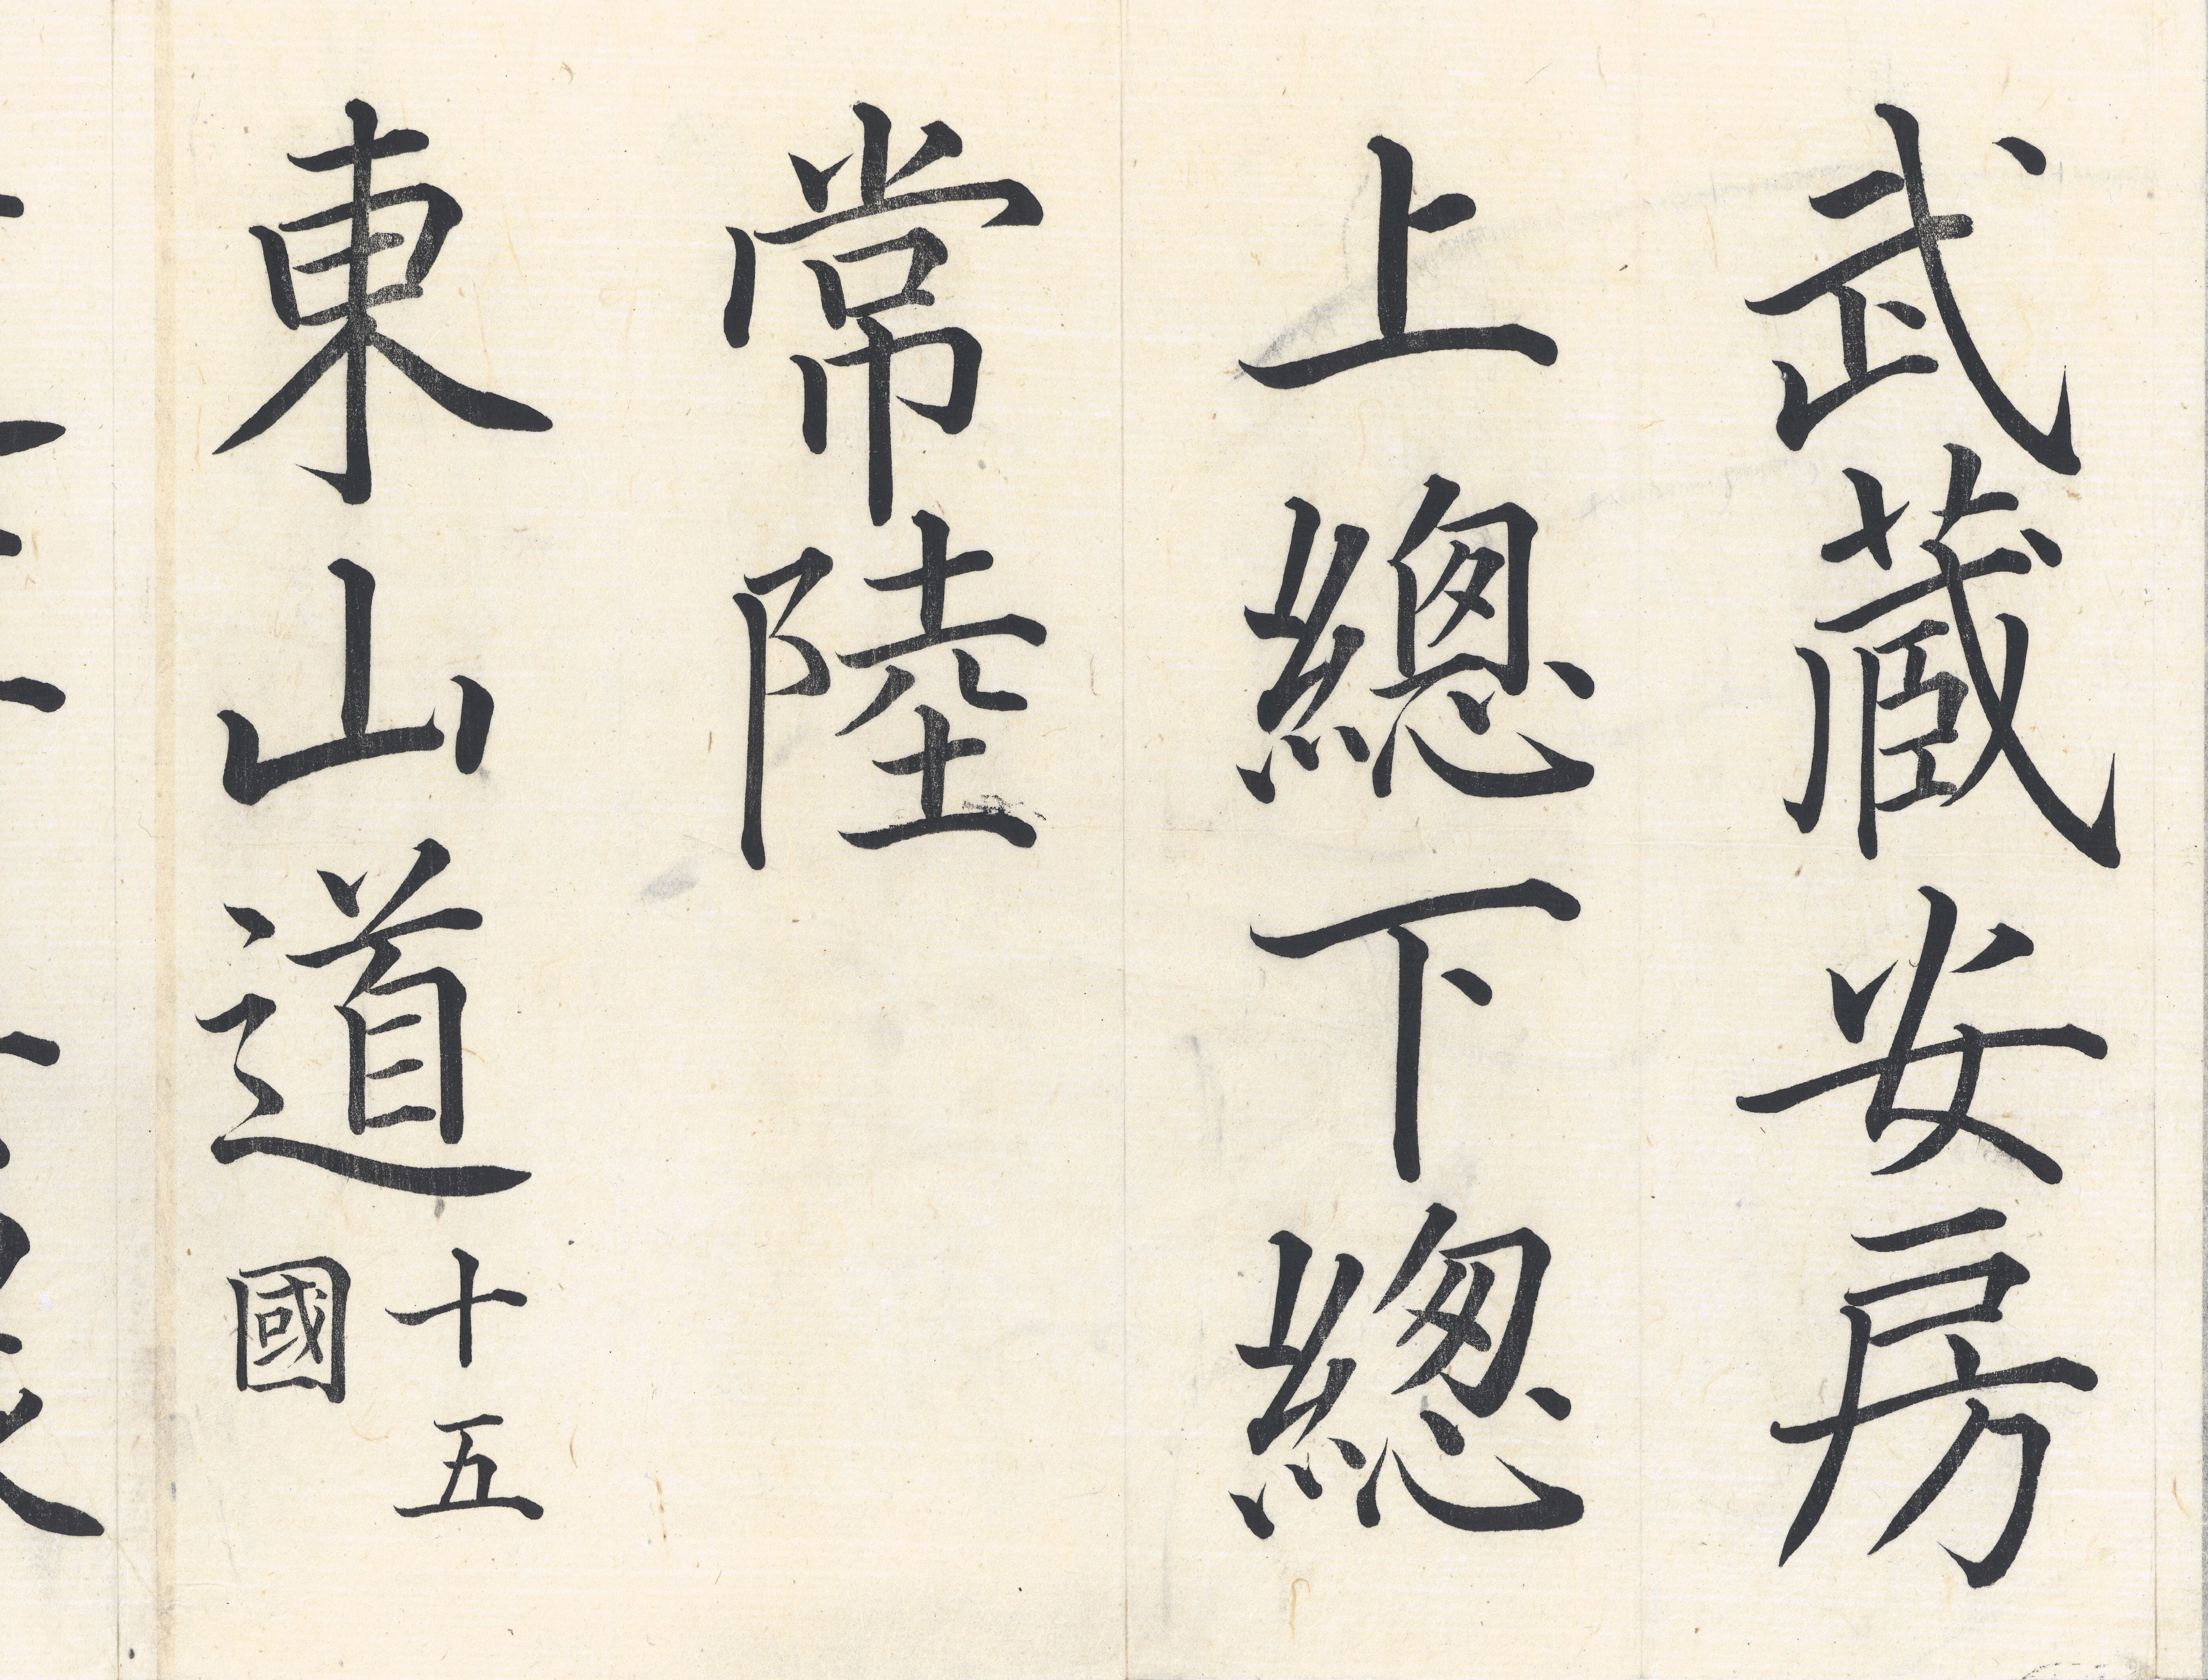 武蔵安房
上總下總
常陸
東山道十五國